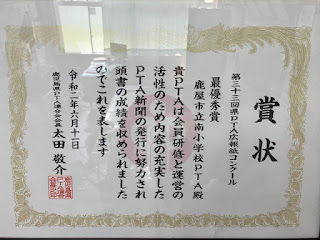 賞状
第三十三回県PTA広報紙コンクール
最優秀賞
鹿屋市立南小学校PTA殿
貴PTAは会員研修と運営の
活性のため内容の充実した
PTA新聞の発行に努力され
頭書の成績を収められました
のでこれを表します
令和二年六月十一日
鹿児島県PTA連合会会長
太田敬介